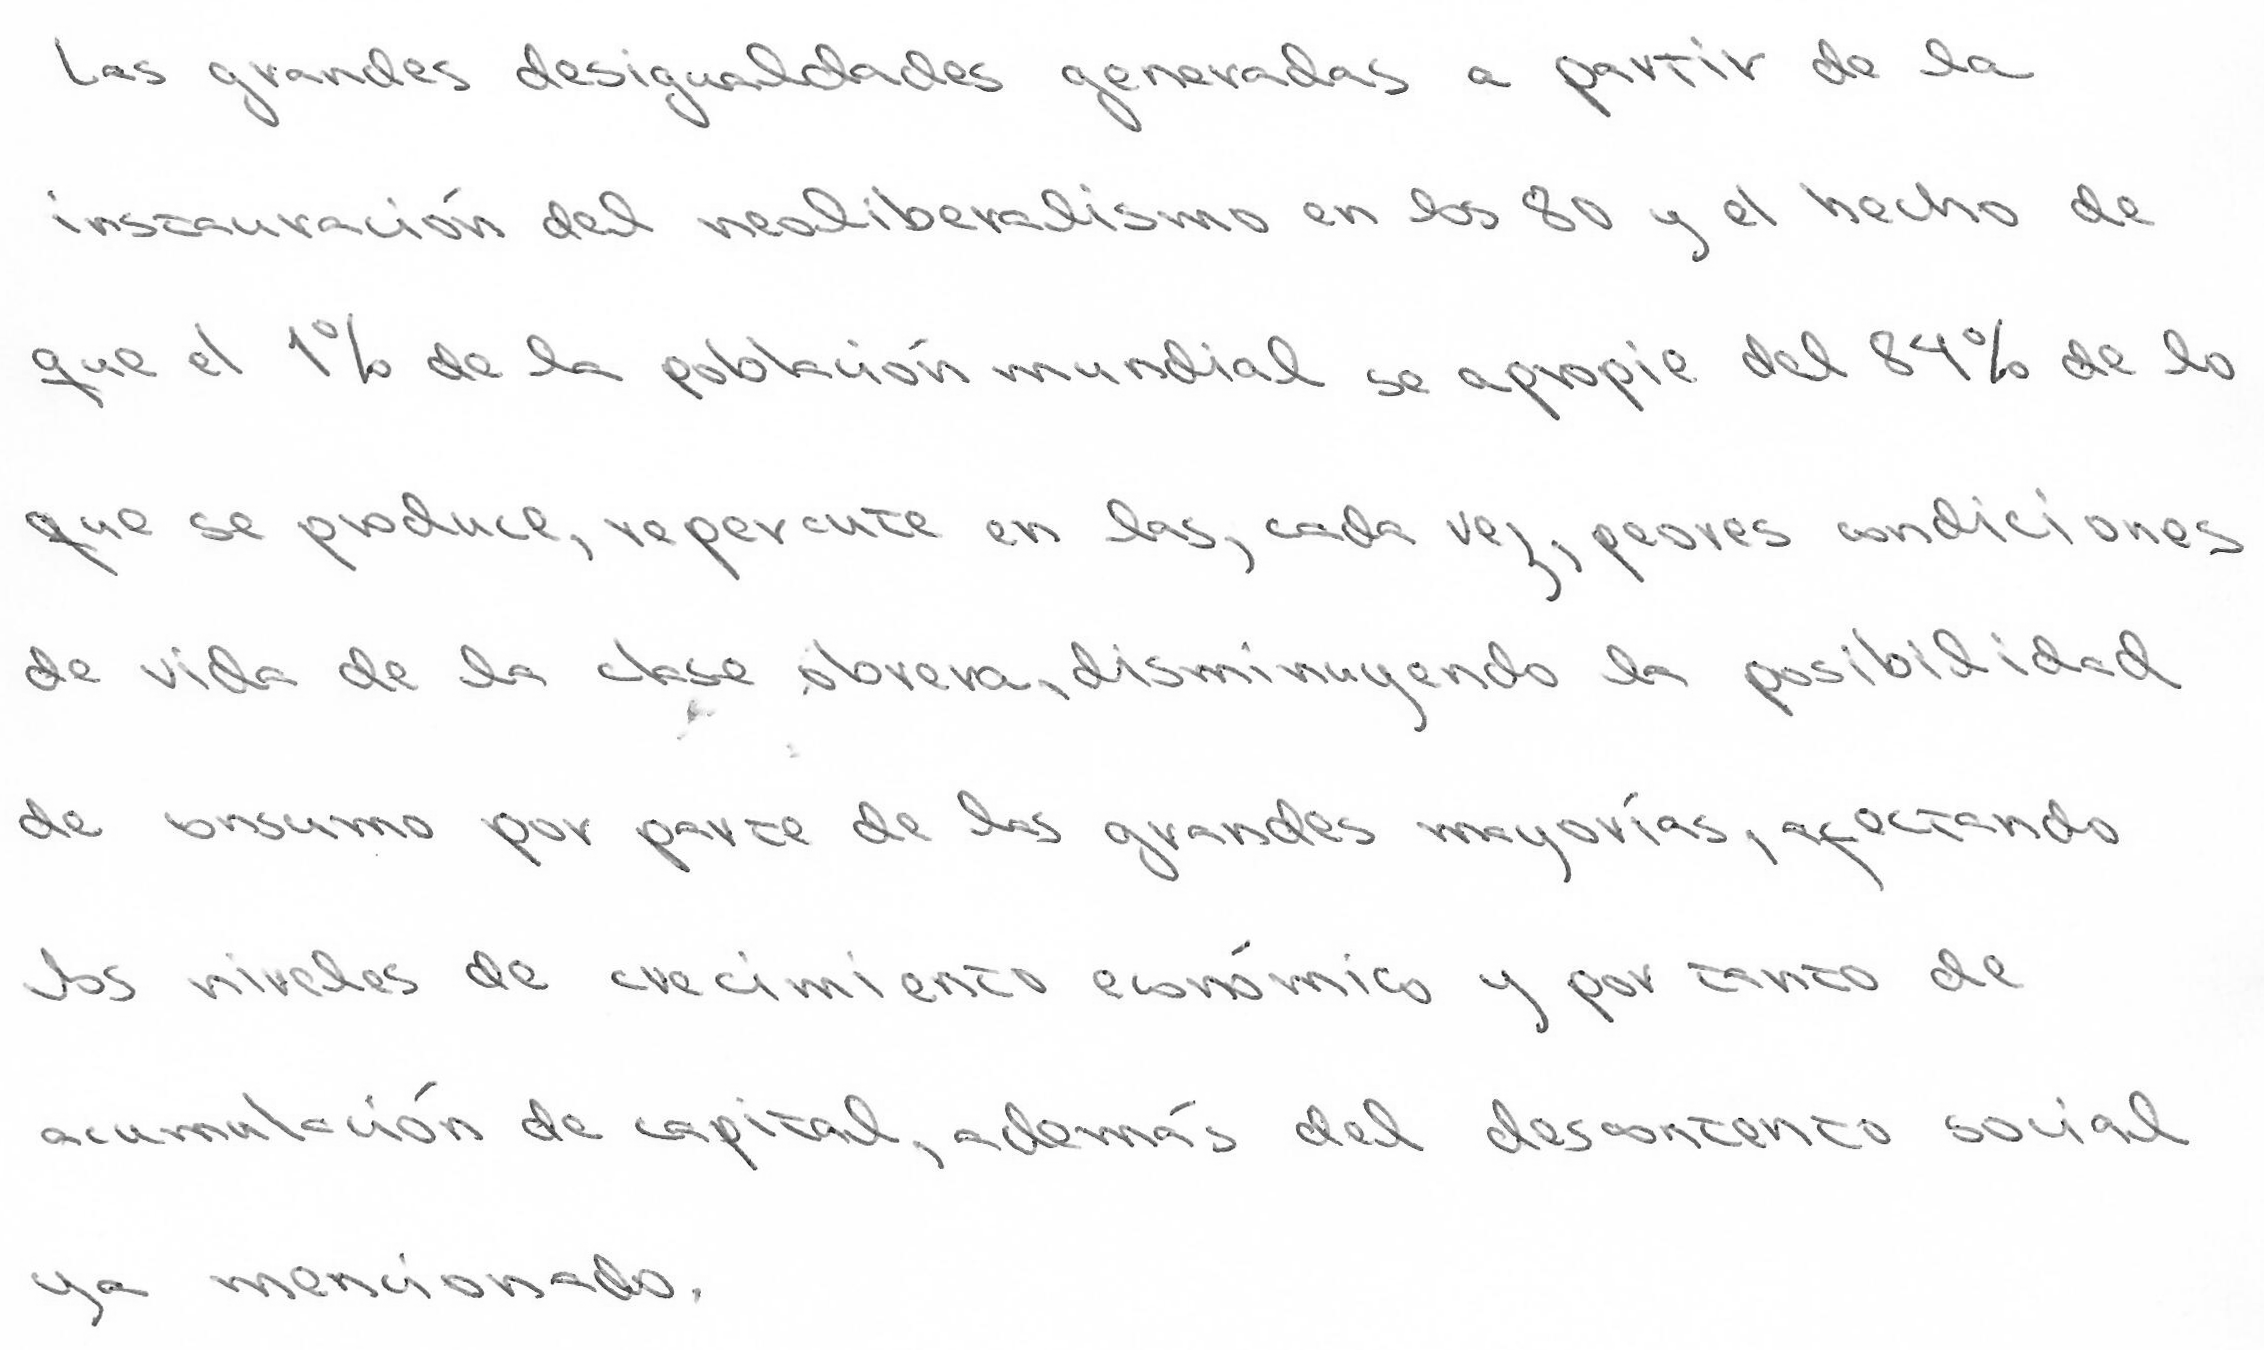 Las grandes desigualdades generadas a partir de la
instauración del neoliberalismo en los 80 y el hecho de
que el 1% de la población mundial se apropie del 84% de lo
que se produce, repercute en las, cada vez, peores condiciones
de vida de la clase obrera, disminuyendo la posibilidad
de consumo por parte de las grandes mayorías, afectando
los niveles de crecimiento económico y por tanto de
acumulación de capital, además del descontento social
ya mencionado.